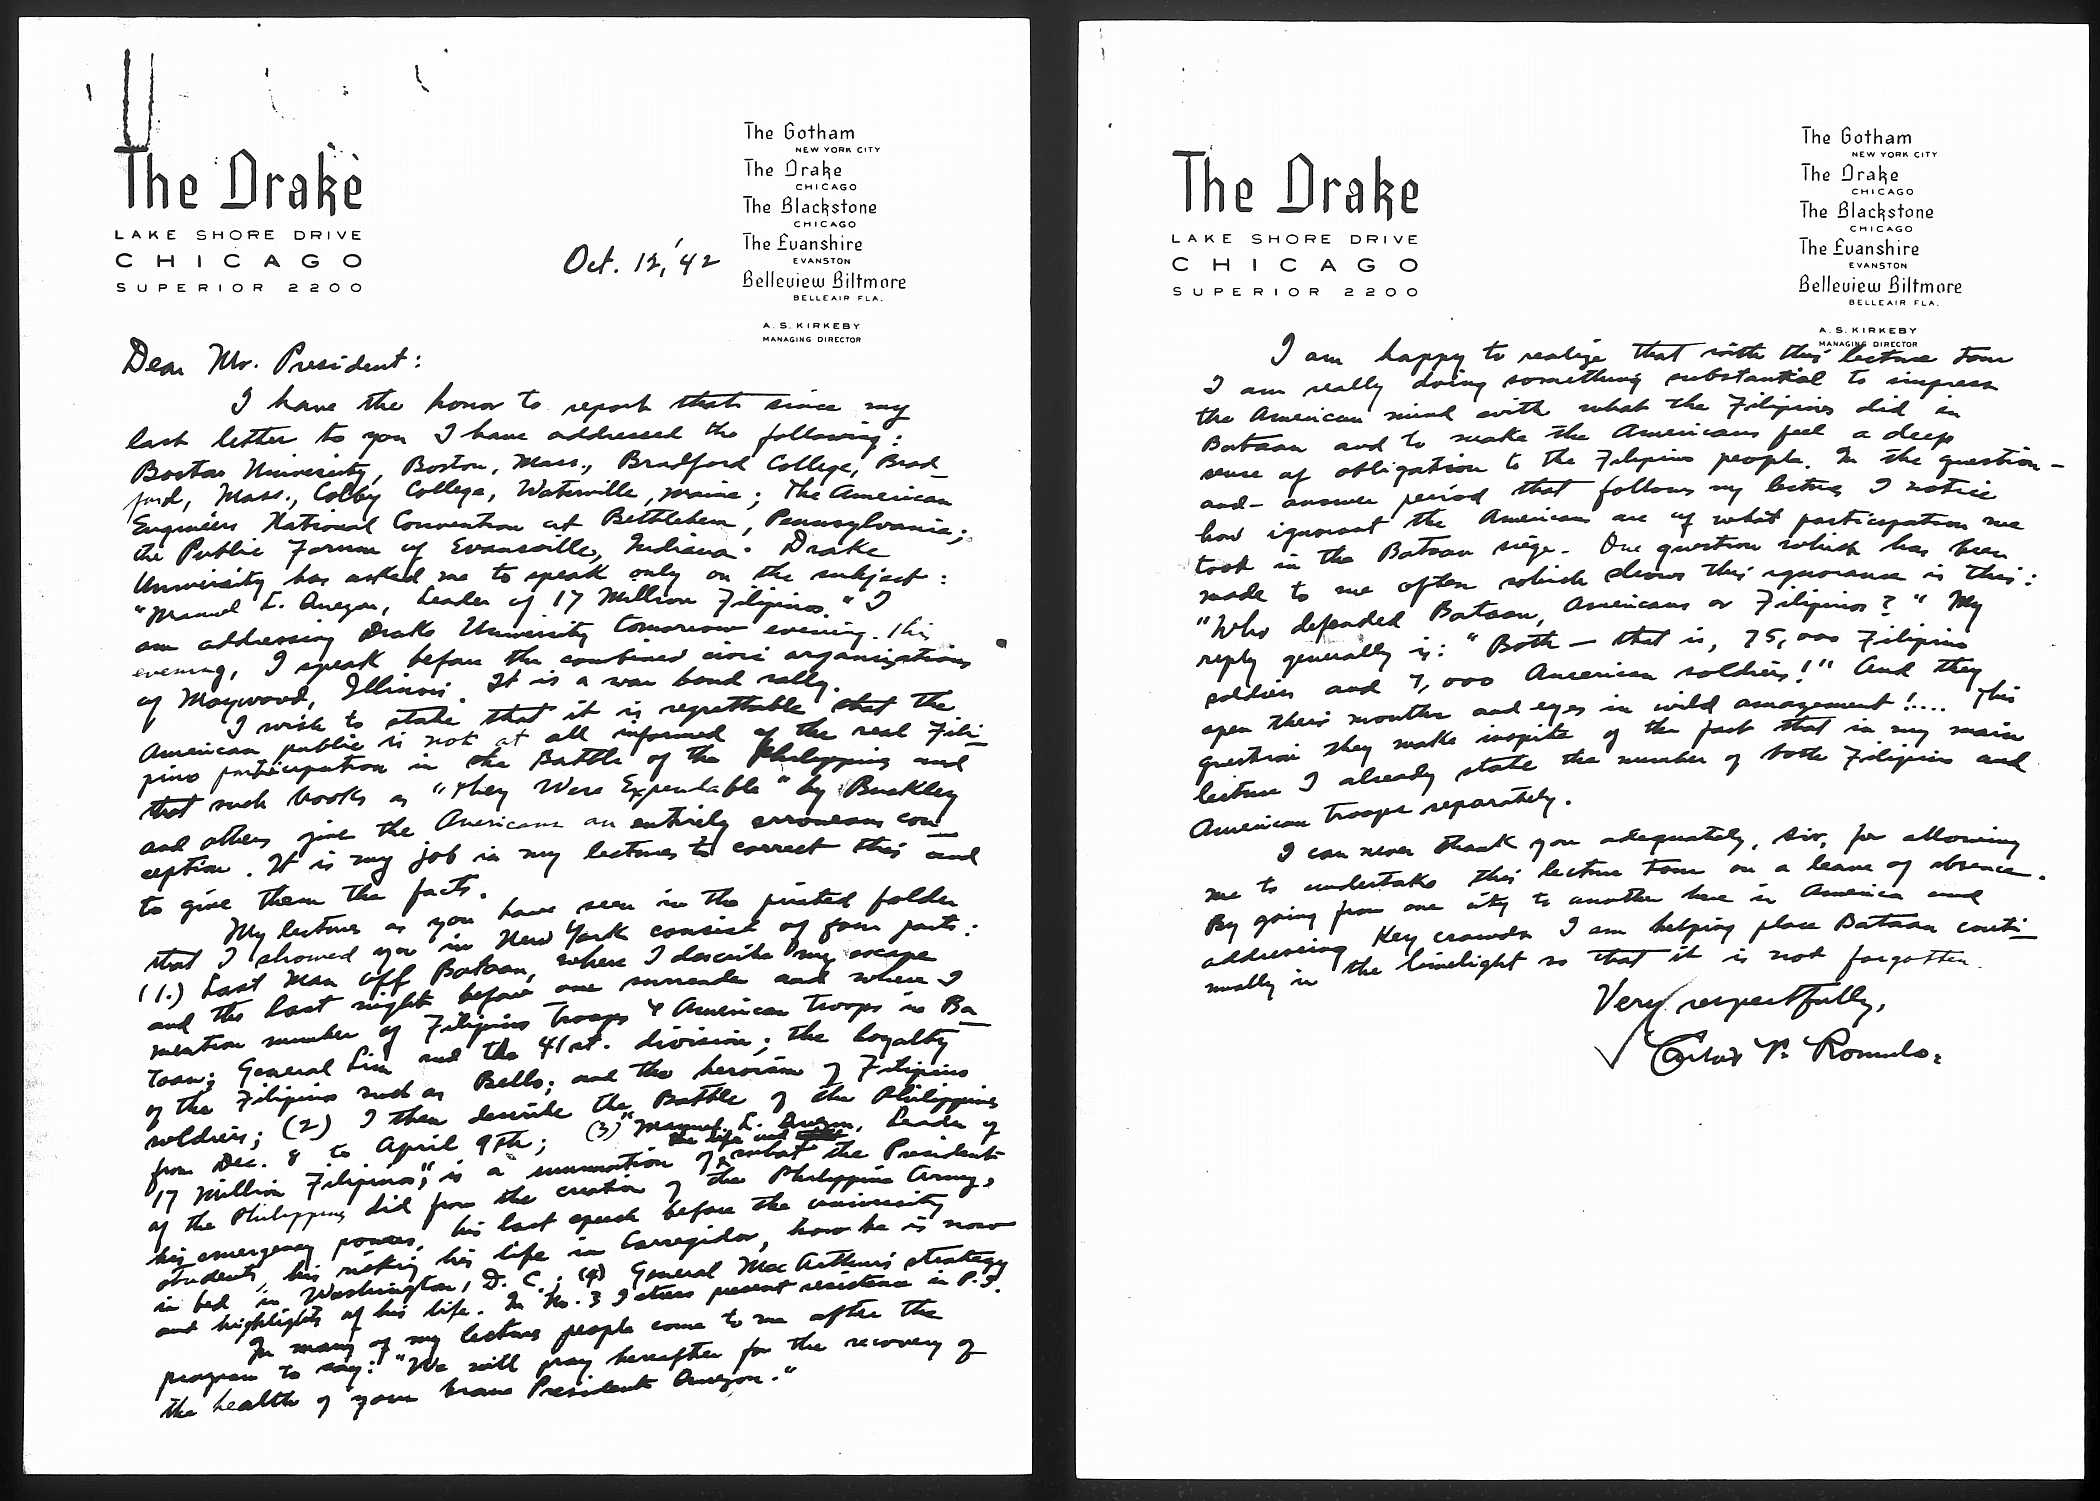 The Drake
LAKE SHORE DRIVE
CHICAGO
SUPERIOR 2200
The Gotham
NEW YORK CITY
The Drake
CHICAGO
The Blackstone
CHICAGO
The Evanshire
EVANSTON
Belleview Biltmore
BELLEAIR FLA.
A. S. KIRKEBY
MANAGING DIRECTOR
Oct. 12, '42
Dear Mr. President:
I have the honor to report that since my
last letter to you I have addressed the following:
Boston University, Boston, Mass., Bradford College, Brad-
ford, Mass., Colby College, Waterville, Maine; The American
Engineers National Convention at Bethlehem, Pennsylvania;
the Public Forum of Evansville, Indiana. Drake
University has asked me to speak only on the subject:
"Manuel L. Quezon, Leader of 17 Million Filipinos." I
am addressing Drake University tomorrow evening. This
evening, I speak before the combined civic organizations
of Maywood, Illinois. It is a war bond rally.
I wish to state that it is regrettable that the
American public is not at all informed of the real Fili-
pino participation in the Battle of the Philippines and
that such books as "They Were Expendable" by Buckley
and others give the Americans an entirely erroneous con-
ception. It is my job in my lectures to correct this and
to give them the facts.
My lectures as you have seen in the printed folder
that I showed you in New York consist of four parts:
(1.) Last Man Off Bataan, where I describe my escape
and the last night before our surrender and where I
mention number of Filipino troops & American troops in Ba-
taan; General Lim and the 41st. division; the loyalty
of the Filipinos such as Bello; and the heroism of Filipino
soldiers; (2) I then describe the Battle of the Philippines
from Dec. 8 to April 9th; (3) "Manuel L. Quezon, Leader of
17 Million Filipinos", is a summation of the life and what the President
of the Philippines did from the creation of the Philippine Army,
his emergency powers, his last speech before the university
students, his risking his life in Corregidor, how he is now
in bed in Washington, D. C.; (4) General MacArthur's strategy
and highlights of his life. In No. 3 I stress present resistance in P.I.
In many of my lectures people come to me after the
program to say: "We will pray hereafter for the recovery of
the health of your brave President Quezon."
The Drake
LAKE SHORE DRIVE
CHICAGO
SUPERIOR 2200
The Gotham
NEW YORK CITY
The Drake
CHICAGO
The Blackstone
CHICAGO
The Evanshire
EVANSTON
Belleview Biltmore
BELLEAIR FLA.
A. S. KIRKEBY
MANAGING DIRECTOR
I am happy to realize that with this lecture tour
I am really doing something substantial to impress
the American mind with what the Filipinos did in
Bataan and to make the Americans feel a deep
sense of obligation to the Filipino people. In the question-
and-answer period that follows my lectures I notice
how ignorant the Americans are of what participation we
took in the Bataan siege. One question which has been
made to me often which shows this ignorance is this:
"Who defended Bataan, Americans or Filipinos?" My
reply generally is: "Both — that is, 75,000 Filipino
soldiers and 7,000 American soldiers!" And they
open their mouths and eyes in wild amazement!.... This
question they make inspite of the fact that in my main
lecture I already state the number of both Filipino and
American troops separately.
I can never thank you adequately, Sir, for allowing
me to undertake this lecture tour on a leave of absence.
By going from one city to another here in America and
addressing key crowds I am helping place Bataan conti-
nually in the limelight so that it is not forgotten.
Very respectfully,
Carlos P. Romulo